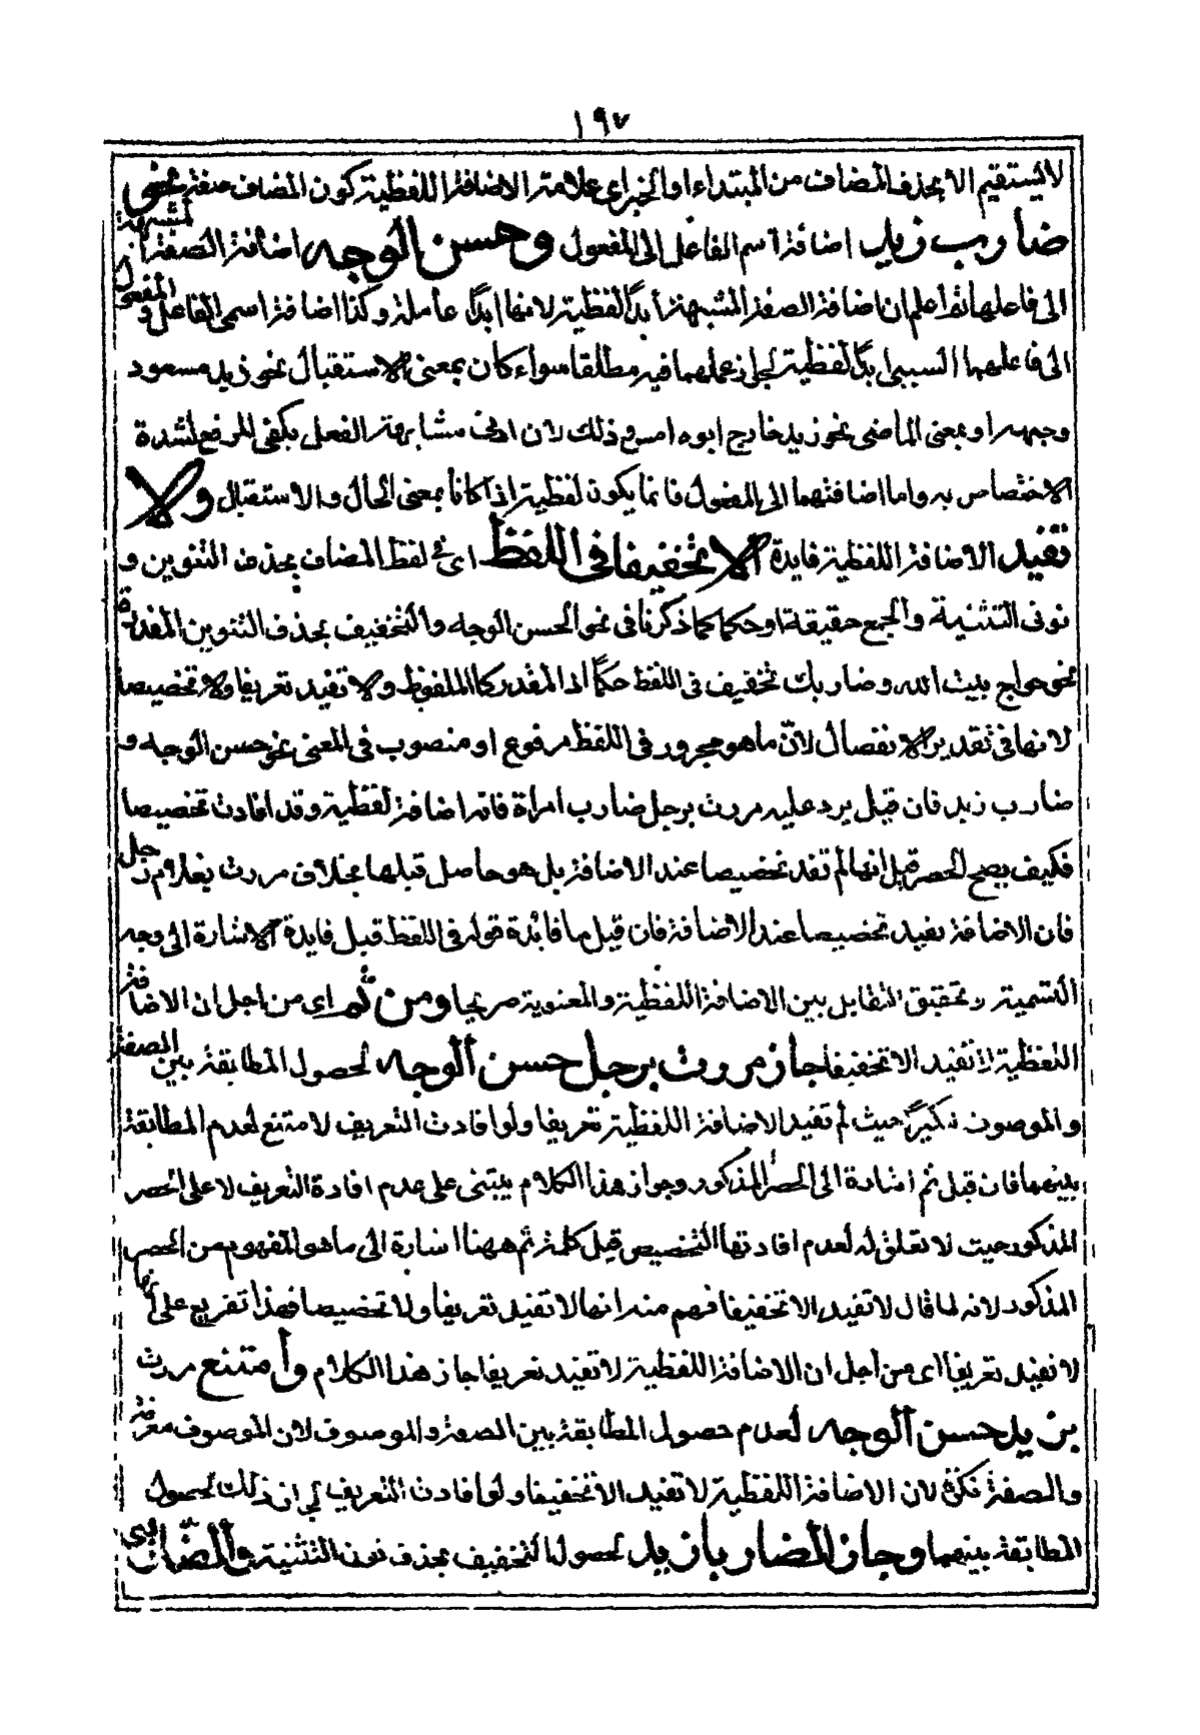 ١٩٧
لا يستقيم الا بحذف المضاف من المبتداء او الخبر اى علامة الاضافة اللفظية كون المضاف صفة نحو
ضارب زيد اضافة اسم الفاعل الى المفعول وحسن الوجه اضافة الصفة المشبهة
الى فاعلها ثم اعلم ان اضافة الصفة المشبهة أبدًا لفظية لانها ابدًا عاملة وكذا اضافة اسمى الفاعل والمفعول
الى فاعلهما السببى ابدًا لفظية لجواز عملهما فيه مطلقا سواء كان بمعنى الاستقبال نحو زيد مسعود
وجهه او بمعنى الماضى نحو زيد خارج ابوه امس وذلك لان ادنى مشابهة الفعل يكفى للرفع لشدة
الاختصاص به واما اضافتهما الى المفعول فانما يكون لفظية اذا كانا بمعنى الحال والاستقبال ولا
تفيد الاضافة اللفظية فايدة الا تخفيفا فى اللفظ اى فى لفظ المضاف بحذف التنوين و
نونى التثنية والجمع حقيقة او حكما كما ذكرنا فى نحو الحسن الوجه والتخفيف بحذف التنوين المقدرة
نحو حواج بيت الله وضاربك تخفيف فى اللفظ حكمًا اذ المقدر كالملفوظ ولا تفيد تعريفا ولا تخصيصا
لانها فى تقدير الانفصال لانّ ما هو مجرور فى اللفظ مرفوع او منصوب فى المعنى نحو حسن الوجه و
ضارب زيد فان قيل يرد عليه مررت برجل ضارب امراة فانه اضافة لفظية وقد افادت تخصيصا
فكيف يصح الحصر قيل انها لم تفد تخصيصا عند الاضافة بل هو حاصل قبلها بخلاف مررت بغلام رجل
فان الاضافة يفيد تخصيصا عند الاضافة فان قيل ما فائدة قوله فى اللفظ قيل فايدة الاشارة الى وجه
التسمية وتحقيق التقابل بين الاضافة اللفظية والمعنوية صريحا ومن ثم اى من اجل ان الاضافة
اللفظية لا تفيد الا تخفيفا جاز مررت برجل حسن الوجه لحصول المطابقة بين الصفة
والموصوف تنكيرًا حيث لم تفيد الاضافة اللفظية تعريفا ولو افادت التعريف لامتنع لعدم المطابقة
بينهما فان قيل ثم اشارة الى الحصر المذكور وجواز هذا الكلام يبتنى على عدم افادة التعريف لا على الحصر
المذكور حيث لا تعلق له لعدم افادتها التخصيص قيل كلمة ثم ههنا اشارة الى ما هو المفهوم من الحصر
المذكور لانه لما قال لا تفيد الا تخفيفا فهم منه انها لا تفيد تعريفا ولا تخصيصا فهذا تفريع على انها
لا تفيد تعريفا اى من اجل ان الاضافة اللفظية لا تفيد تعريفا جاز هذا الكلام وأمتنع مررت
بزيد حسن الوجه لعدم حصول المطابقة بين الصفة والموصوف لان الموصوف معرفة
والصفة نكرة لان الاضافة اللفظية لا تفيد الا تخفيفا ولو افادت التعريف لجاز ذلك لحصول
المطابقة بينهما وجاز الضاربا زيد لحصول التخفيف بحذف نون التثنية والضاربى